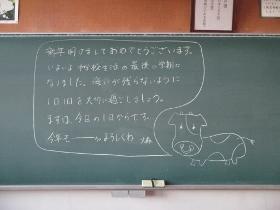 新年明けましておめでとうございます。
いよいよ学校生活の最後の学期に
なりました。悔いが残らないように
1日1日を大切に過ごしましょう。
まずは、今日の1日からです。
今年も――よろしくね